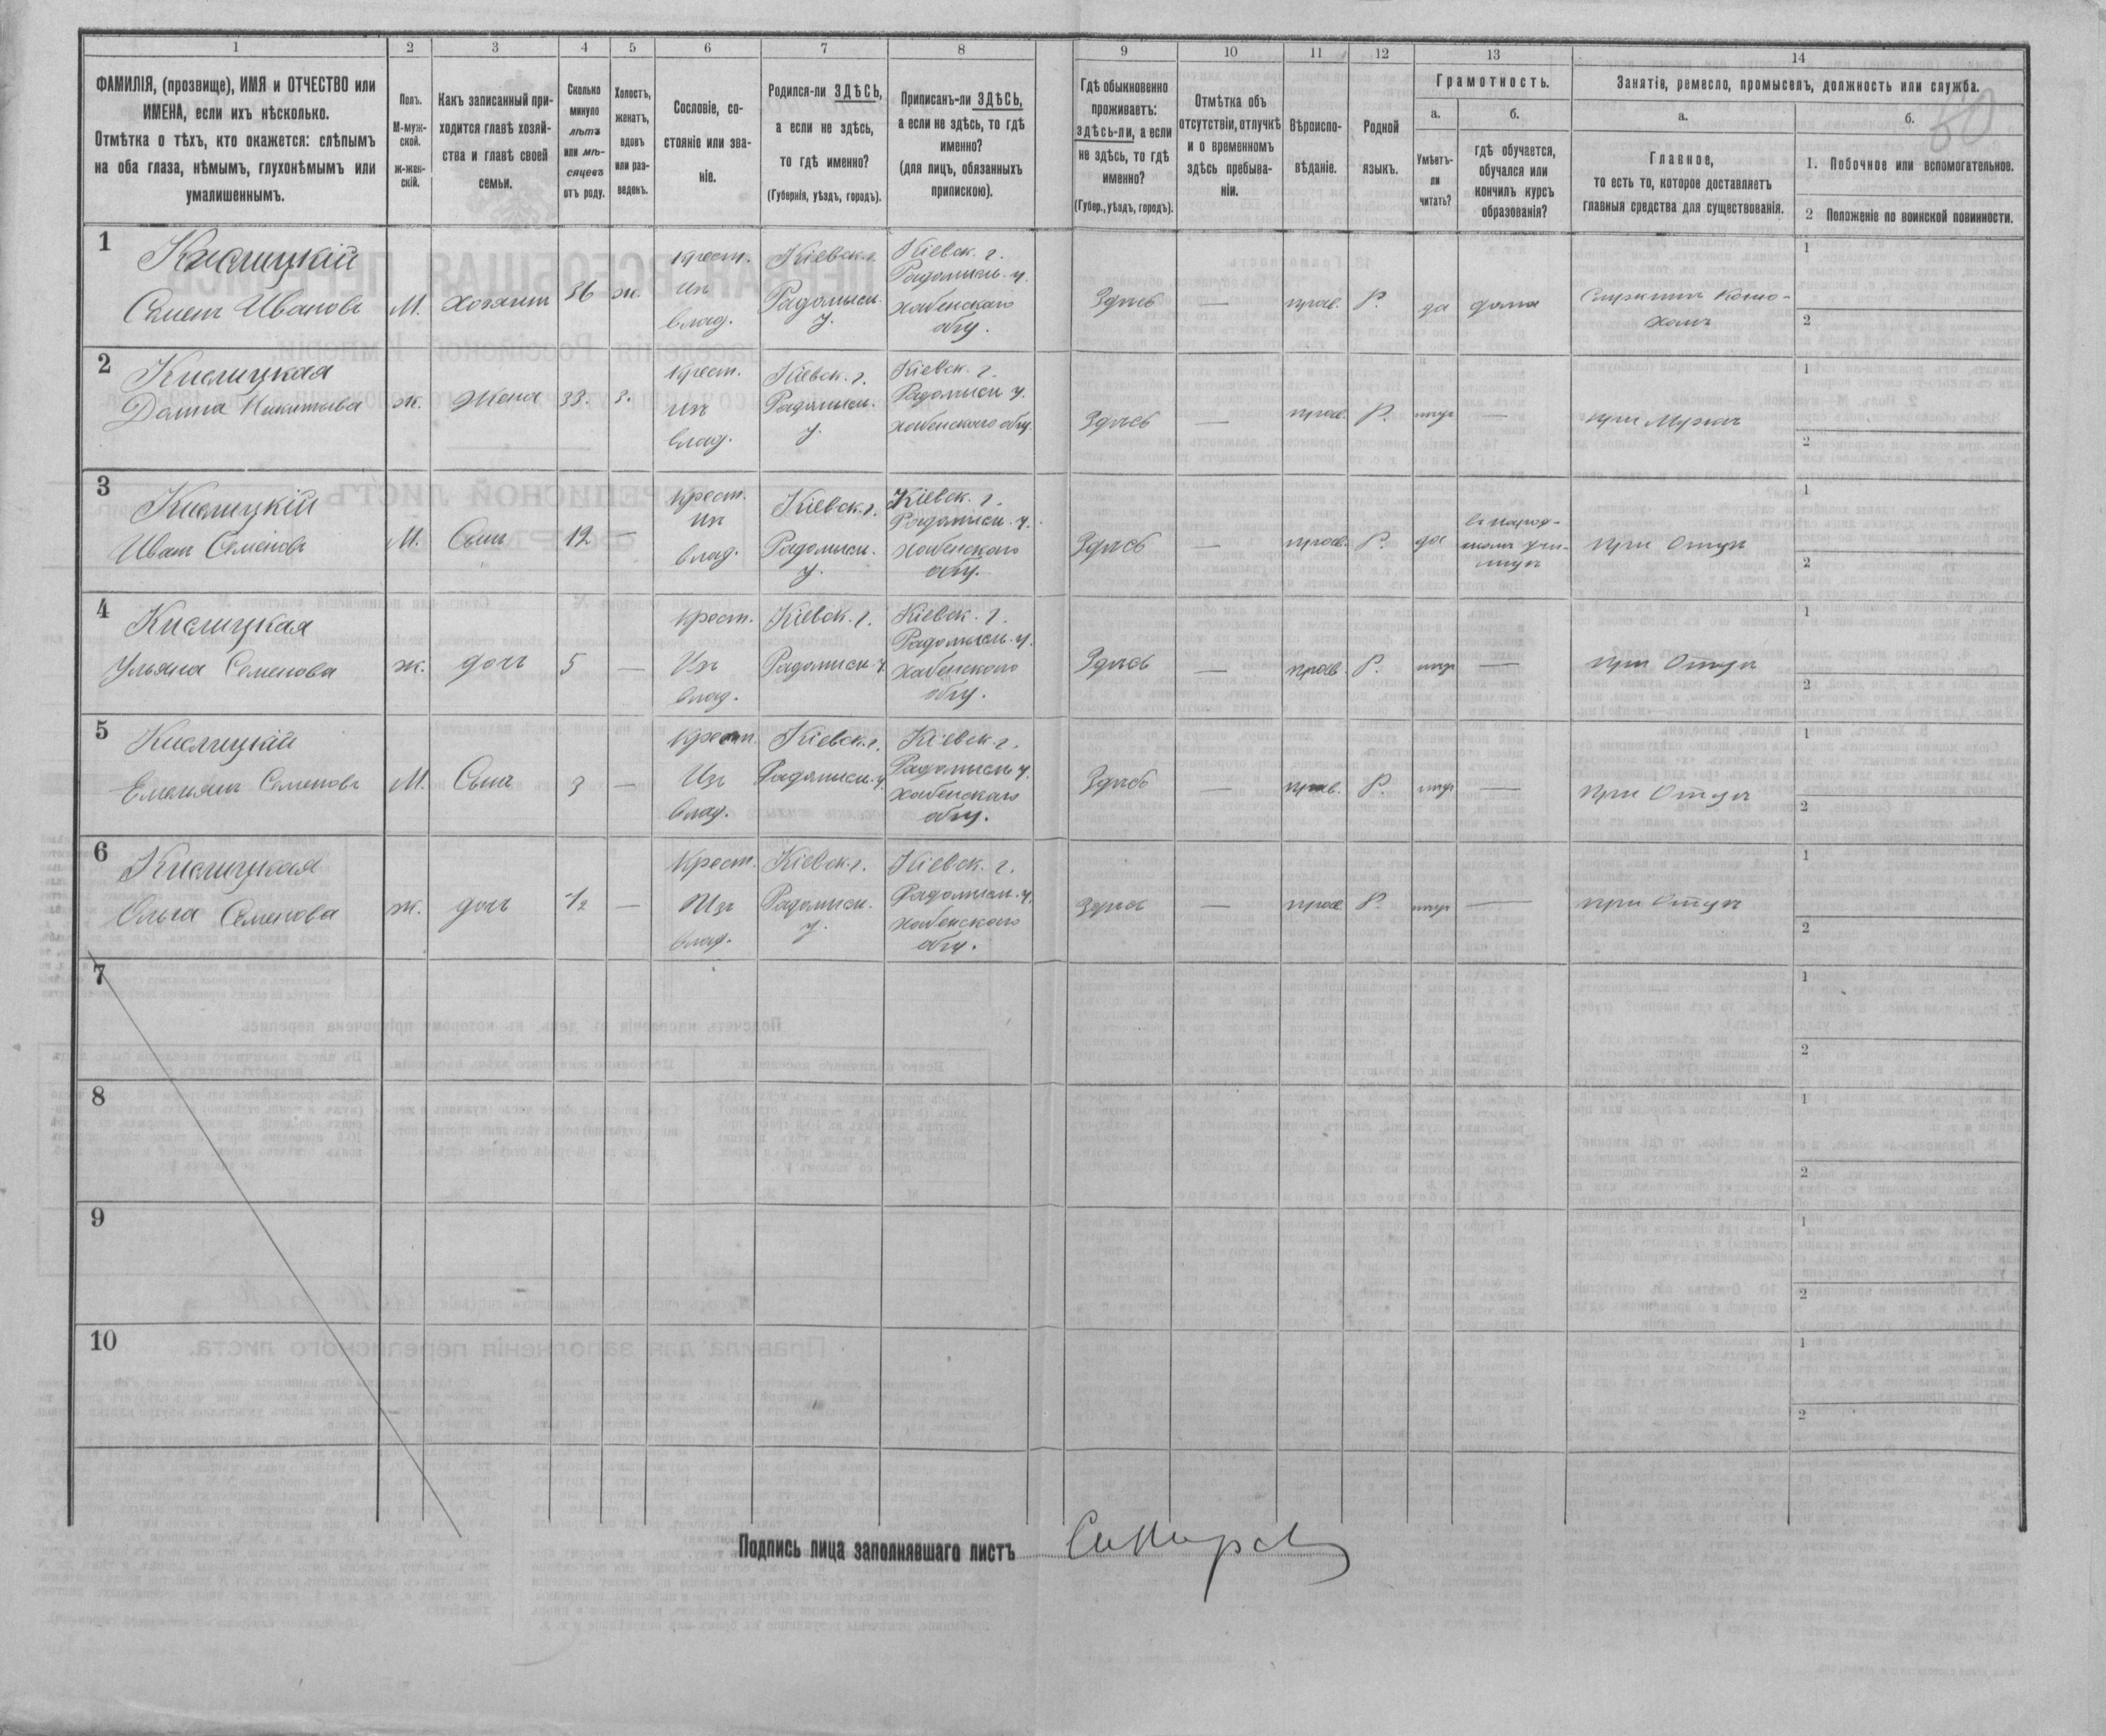 1 2 3 4 5 6 7 8 9 10 11 12 13 14
ФАМИЛІЯ, (прозвище), ИМЯ и ОТЧЕСТВО или
ИМЕНА, если ихъ нѣсколько.
Отмѣтка о тѣхъ, кто окажется: слѣпымъ
на оба глаза, нѣмымъ, глухонѣмымъ или
умалишеннымъ.
Полъ.
М-муж-
ской.
ж-жен-
скій.
Какъ записанный при-
ходится главѣ хозяй-
ства и главѣ своей
семьи.
Сколько
минуло
лѣтъ
или мѣ-
сяцевъ
отъ роду.
Холостъ,
женатъ,
вдовъ
или раз-
веденъ.
Сословіе, со-
стояніе или зва-
ніе.
Родился-ли ЗДѢСЬ,
а если не здѣсь,
то гдѣ именно?
(Губернія, уѣздъ, городъ).
Приписанъ-ли ЗДѢСЬ,
а если не здѣсь, то гдѣ
именно?
(для лицъ, обязанныхъ
припискою).
Гдѣ обыкновенно
проживаетъ:
здѣсь-ли, а если
не здѣсь, то гдѣ
именно?
(Губер., уѣздъ, городъ).
Отмѣтка объ
отсутствіи, отлучкѣ
и о временномъ
здѣсь пребыва-
ніи.
Вѣроиспо-
вѣданіе.
Родной
языкъ.
Грамотность.
а.
Умѣетъ-
ли
читать?
б.
гдѣ обучается,
обучался или
кончилъ курсъ
образованія?
Занятіе, ремесло, промыселъ, должность или служба.
а.
Главное,
то есть то, которое доставляетъ
главныя средства для существованія.
б.
1. Побочное или вспомогательное.
2 Положеніе по воинской повинности.
1
Кислицкій
Семенъ Ивановъ
М.
хозяинъ
36
ж.
крест.
изъ
влад.
Кіевск. г.
Радомысл.
у.
Кіевск. г.
Радомысл. у.
хабенскаго
общ.
Здѣсь
—
прав.
Р.
да
дома
1
2
2
Кислицкая
Домна Никитьева
ж.
жена
33.
з.
Крест.
изъ
влад.
Кіевск. г.
Радомысл.
у.
Кіевск. г.
Радомысл у.
хабенского общ.
Здѣсь
—
прав.
Р.
нѣтъ
—
при Мужѣ
1
2
3
Кислицкій
Иванъ Семеновъ
М.
Сынъ
12
—
Крест.
изъ
влад.
Кіевск. г.
Радомысл.
у.
Кіевск. г.
Радомысл. у.
хабенскаго
общ.
Здѣсь
—
прав.
Р.
да
въ народ-
при Отцѣ
1
2
4
Кислицкая
Ульяна Семенова
ж.
дочь
5
—
Крест.
Изъ
влад.
Кіевск. г.
Радомысл. у
Кіевск. г.
Радомысл. у.
хабенского
общ.
Здѣсь
—
прав.
Р.
нѣтъ
—
при Отцѣ
1
2
5
Кислицкій
Емельянъ Семеновъ
М.
Сынъ
3
—
Крест.
Изъ
влад.
Кіевск. г.
Радомысл. у.
Кіевск г.
Радомысл у.
хабенскаго
общ.
Здѣсь
—
прав.
Р.
нѣтъ
—
при Отцѣ
1
2
6
Кислицкая
Ольга Семенова
ж.
дочь
1/2
—
Крест.
Изъ
влад.
Кіевск. г.
Радомысл.
у.
Кіевск. г.
Радомысл. у.
хабенскаго
общ.
Здѣсь
—
прав.
Р.
нѣтъ
—
при Отцѣ
1
2
7
1
2
8
1
2
9
1
2
10
1
2
Подпись лица заполнявшаго листъ